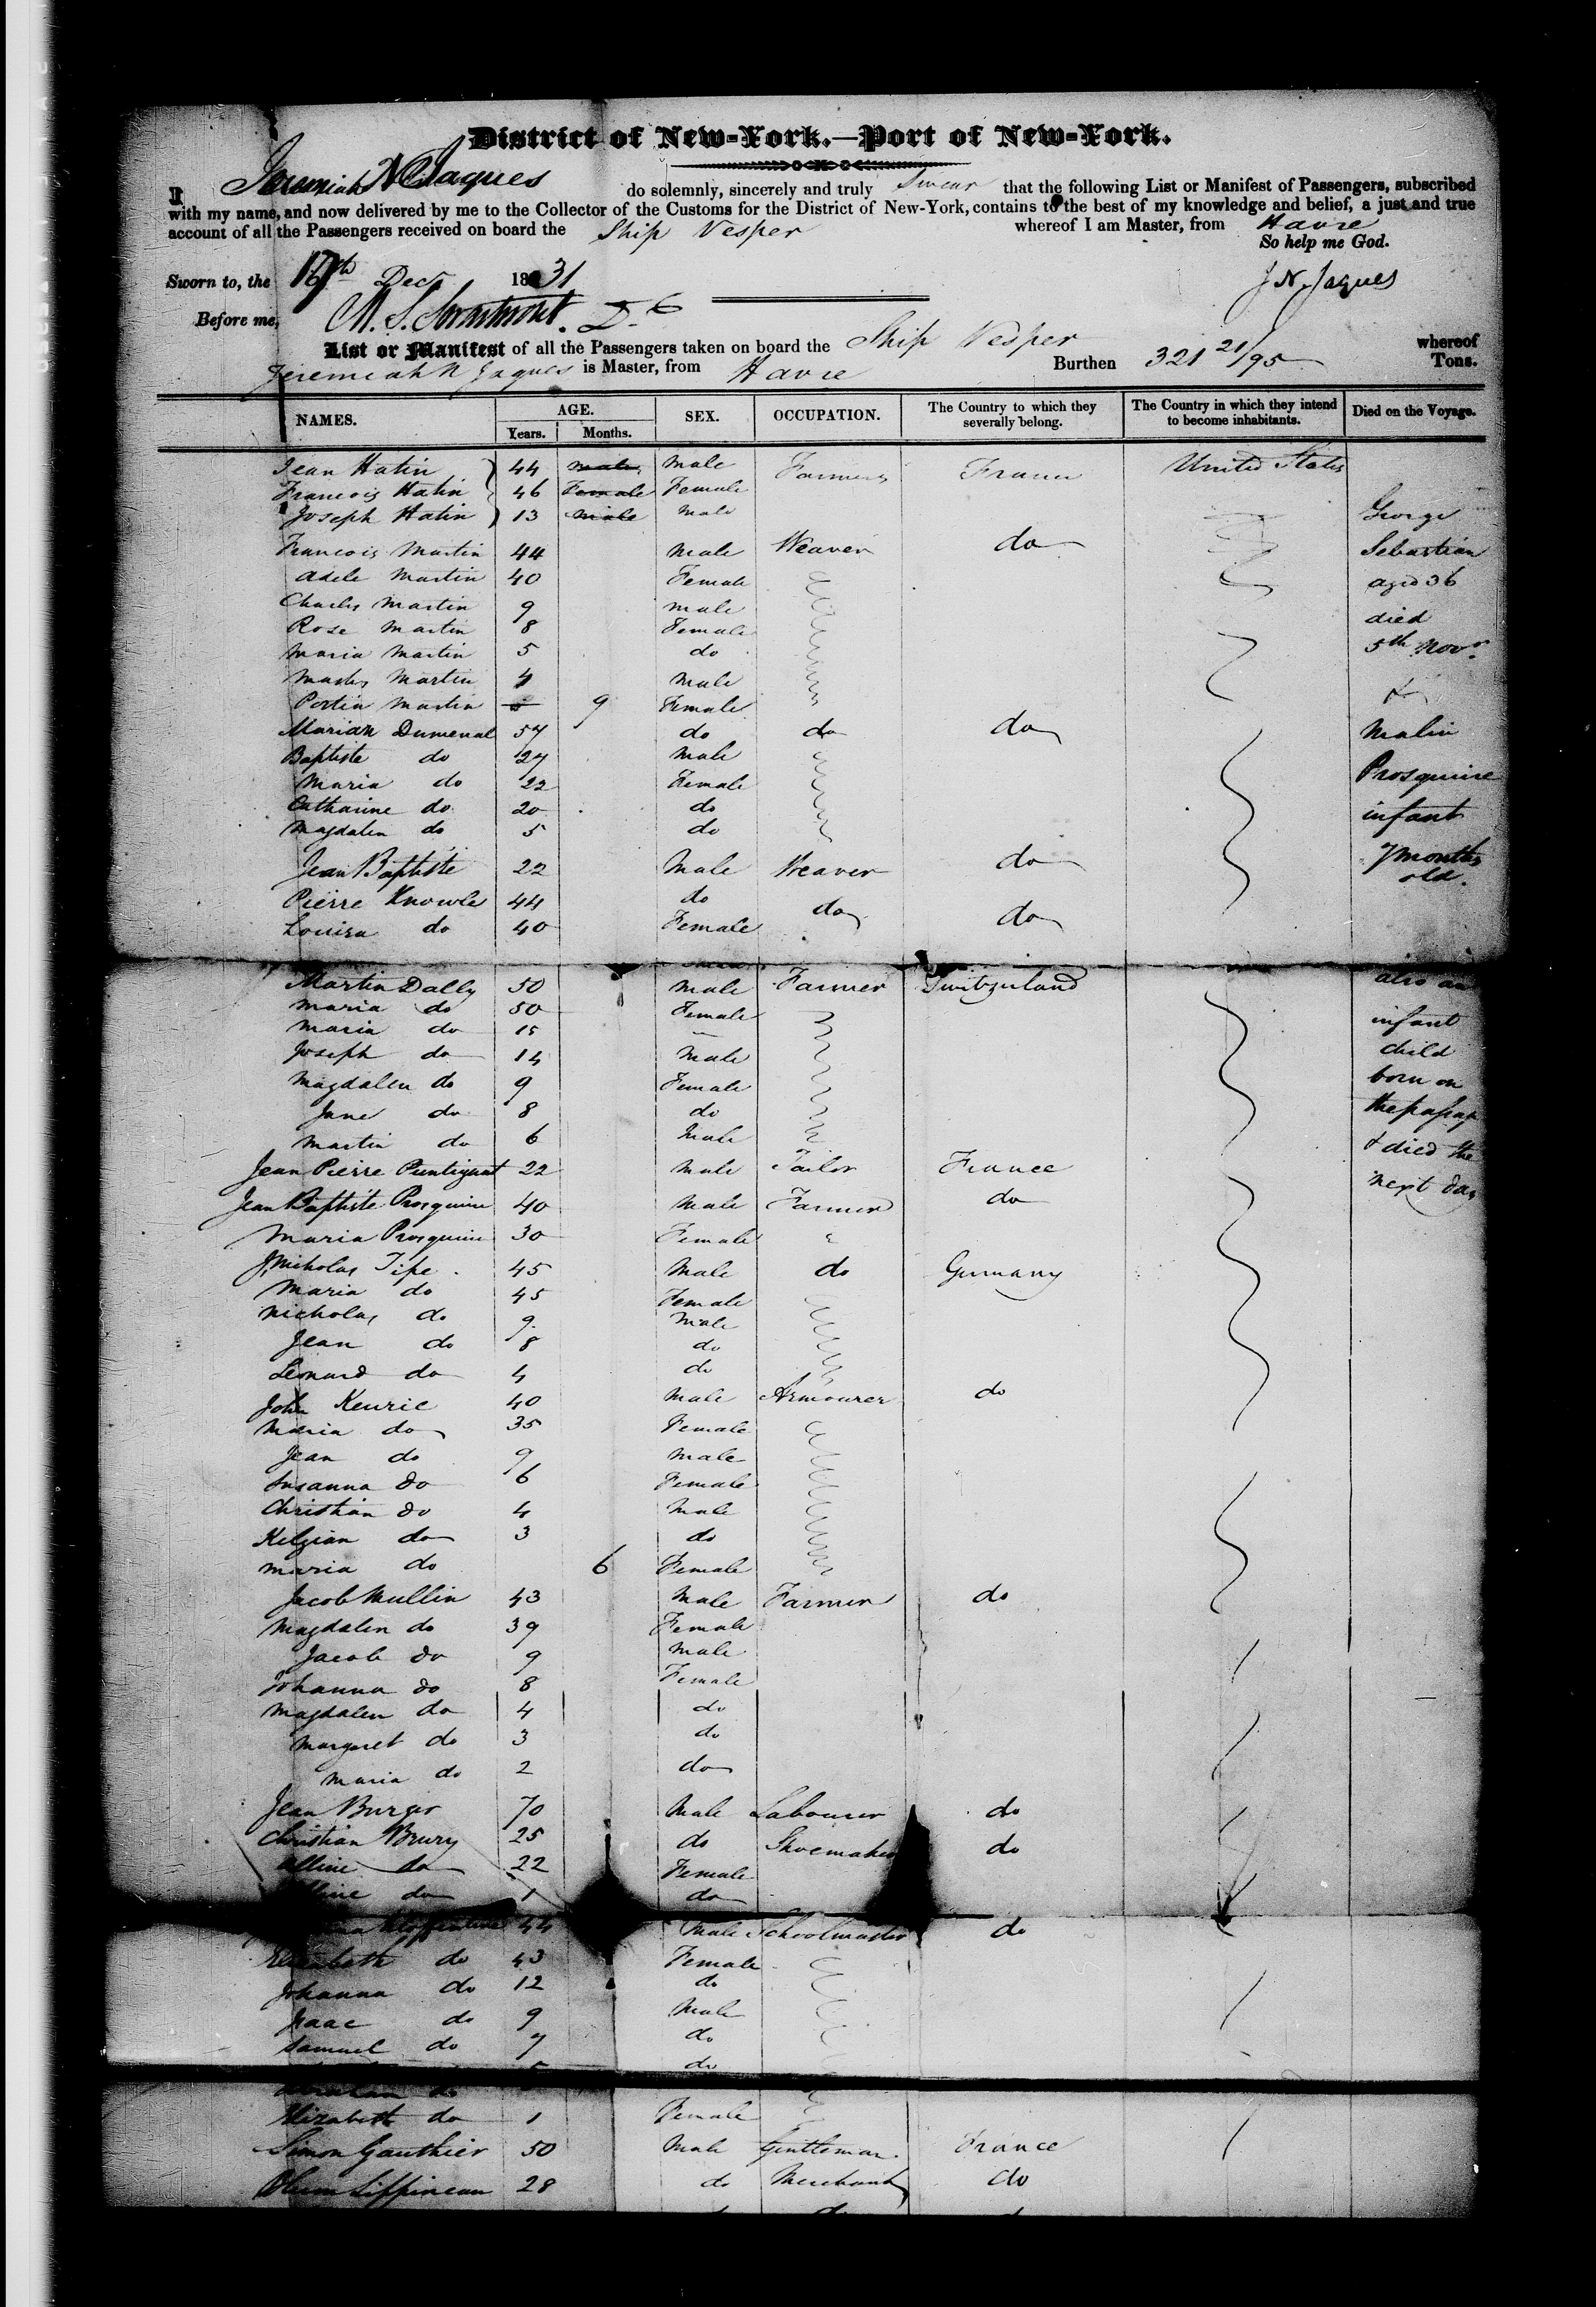 District of New-York.—Port of New-York.
I Jeremiah N Jaques do solemnly, sincerely and truly Swear that the following List or Manifest of Passengers, subscribed
with my name, and now delivered by me to the Collector of the Customs for the District of New-York, contains to the best of my knowledge and belief, a just and true
account of all the Passengers received on board the Ship Vesper whereof I am Master, from Havre
So help me God.
Sworn to, the 17th Decr 1831 J N. Jaques
Before me, M. S.
List or Manifest of all the Passengers taken on board the Ship Vesper whereof
Jeremiah N Jaques is Master, from Havre Burthen 321 21/95 Tons.
NAMES. AGE. SEX. OCCUPATION. The Country to which they severally belong. The Country in which they intend to become inhabitants. Died on the Voyage.
Years. Months.
Jean Hatin 44 male male Farmers France United States
Francois Hatin 46 Female Female
Joseph Hatin 13 male male George
Francois Martin 44 male Weaver do Sebastian
Adele Martin 40 Female aged 36
Charles Martin 9 male died
Rose Martin 8 Female
Maria Martin 5 do 5th Novr
Martin 4 male
Martin 9 Female &
Marian Dumenal 57 do do do Malin
Baptiste do 27 male
Maria do 22 Female Prosquine
Catharine do 20 do infant
Magdalen do 5 do
Jean Baptiste 22 Male Weaver do 7 months old.
Pierre Knowle 44 do do do
Louisa do 40 Female
Martin Dally 50 male Farmer Switzerland also an
Maria do 50 Female infant
Maria do 15
Joseph do 14 male child
Magdalen do 9 Female born on
Jane do 8 do the
Martin do 6 male & died the
Jean Pierre 22 male Tailor France next day
Jean Baptiste Prosquine 40 male Farmer do
Maria Prosquine 30 Female
J. Nicholas Tipe 45 male do Germany
Maria do 45 Female
Nicholas do 9 male
Jean do 8 do
Leonard do 4 do
John Keuric 40 male Armourer do
Maria do 35 Female
Jean do 9 male
Susanna do 6 Female
Christian do 4 male
do 3 do
Maria do 6 Female
Jacob Mullin 43 male Farmer do
Magdalen do 39 Female
Jacob do 9 male
Johanna do 8 Female
Magdalen do 4 do
Margaret do 3 do
Maria do 2 do
Jean Burger 70 male Labourer do
Christian Brury 25 do Shoemaker do
Alline do 22 Female
do 1 do
44 male Schoolmaster do
Elizabeth do 43 Female
Johanna do 12 do
Isaac do 9 male
Samuel do 7 do
do do
Elizabeth do 1 Female
Simon Gauthier 50 male Gentleman France
28 do Merchant do